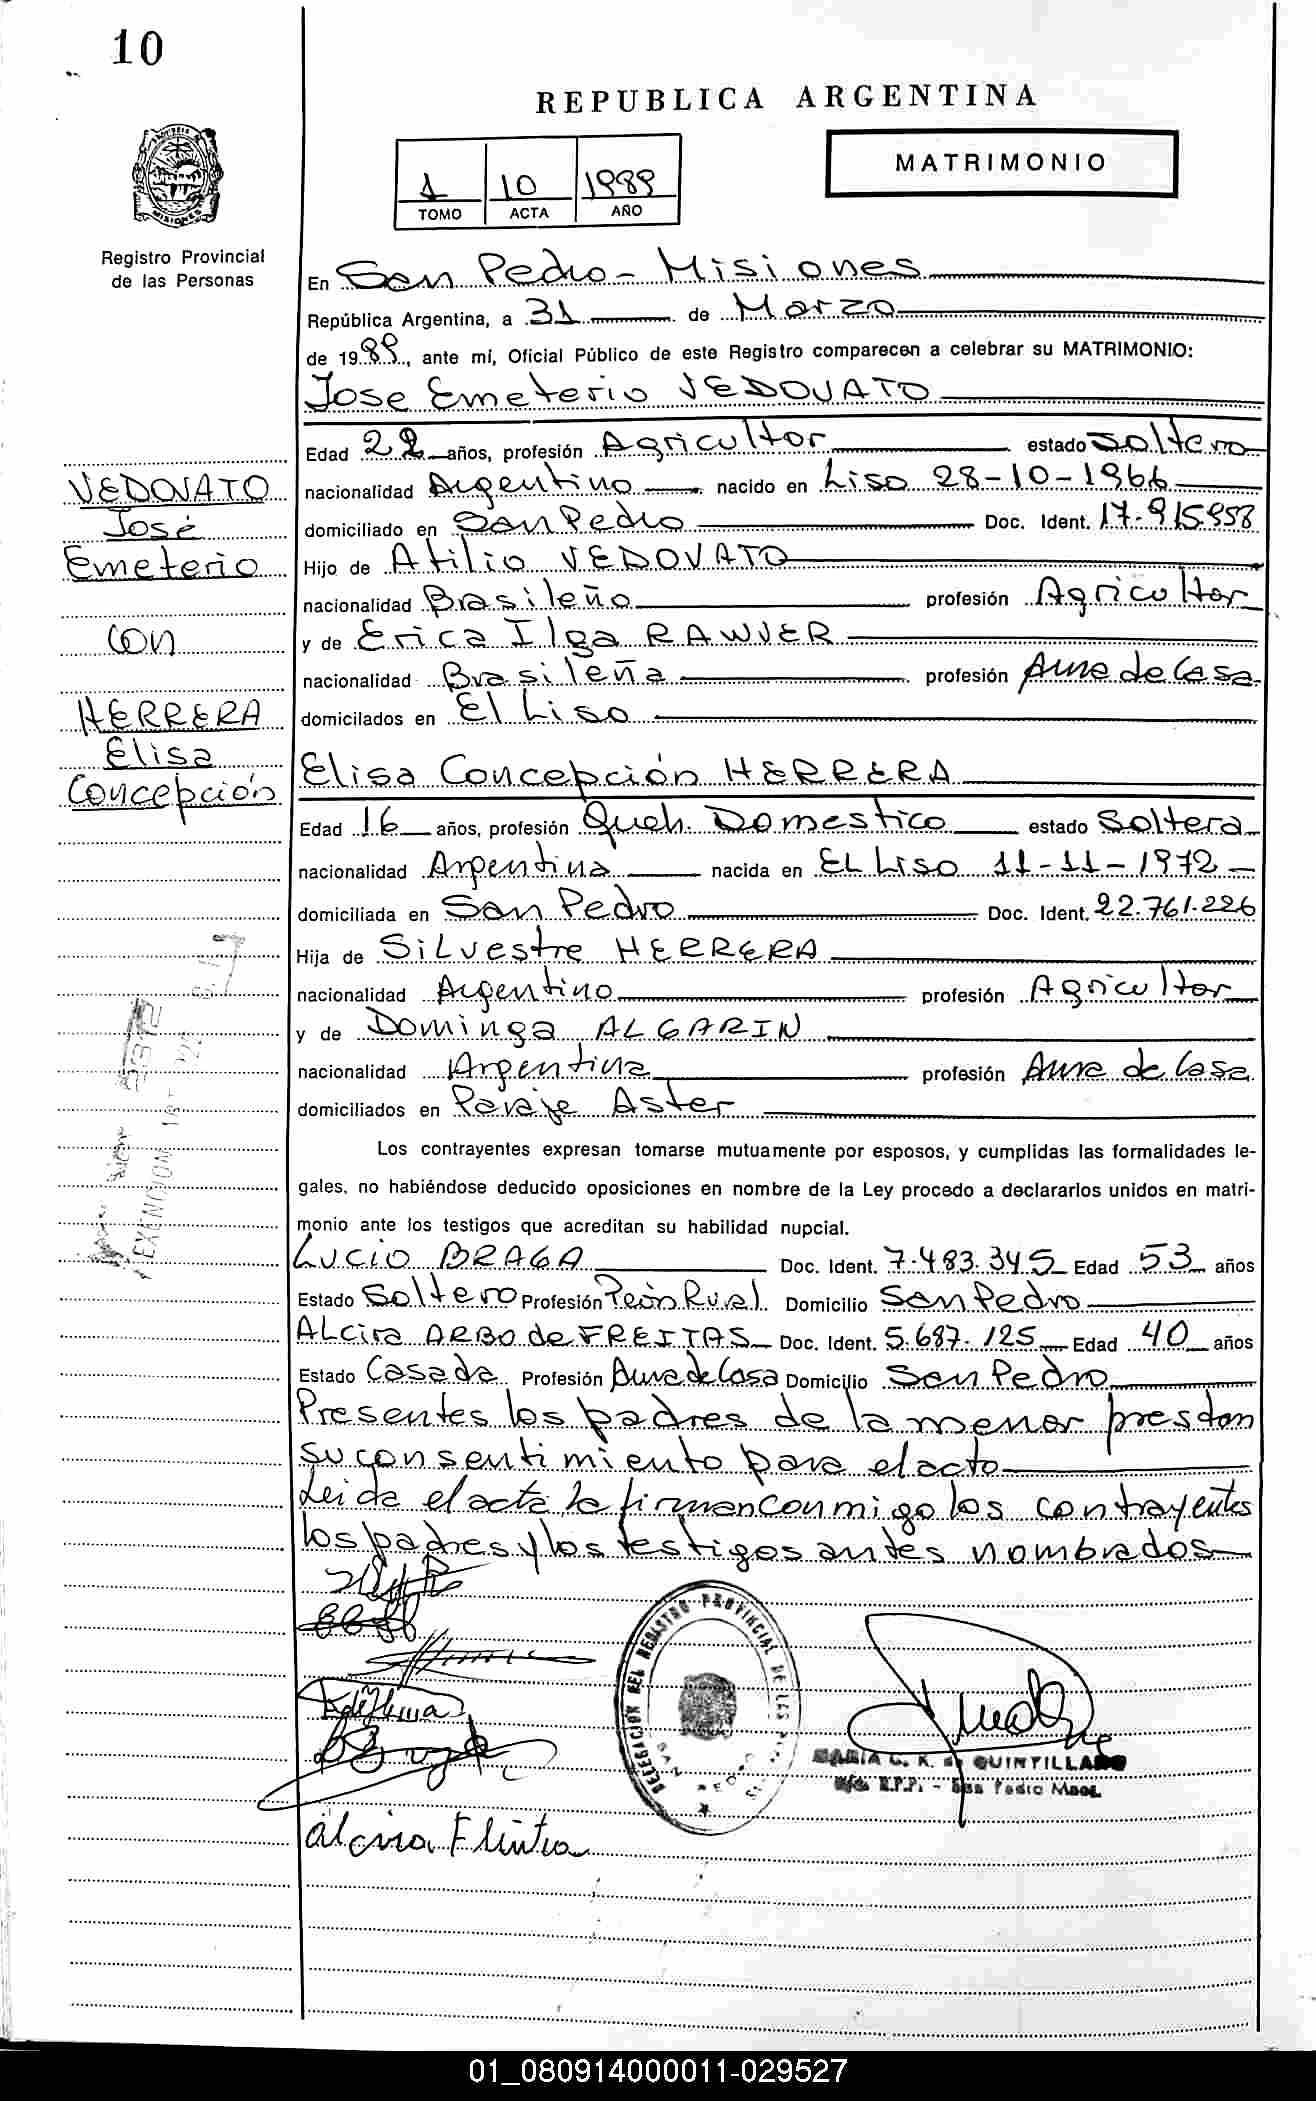 10
REPUBLICA ARGENTINA
MATRIMONIO
1 10 1989
TOMO ACTA AÑO
Registro Provincial
de las Personas
En San Pedro - Misiones
República Argentina, a 31 de Marzo
de 1989, ante mi, Oficial Público de este Registro comparecen a celebrar su MATRIMONIO:
Jose Emeterio VEDOVATO
Edad 22 años, profesión Agricultor estado Soltero
VEDOVATO
nacionalidad Argentino nacido en Liso 28-10-1966
José
domiciliado en San Pedro Doc. Ident. 17.915.958
Emeterio
Hijo de Atilio VEDOVATO
nacionalidad Brasileño profesión Agricultor
con
y de Erica Ilga
nacionalidad Brasileña profesión Ama de Casa
HERRERA
domicilados en El Liso
Elisa
Elisa Concepción HERRERA
Concepción
Edad 16 años, profesión Queh. Domestico estado Soltera
nacionalidad Argentina nacida en EL Liso 11-11-1972
domiciliada en San Pedro Doc. Ident. 22.761.226
Hija de Silvestre HERRERA
nacionalidad Argentino profesión Agricultor
y de Dominga ALGARIN
nacionalidad Argentina profesión Ama de Casa
domiciliados en Paraje Aster
EXENCION
Los contrayentes expresan tomarse mutuamente por esposos, y cumplidas las formalidades le-
gales, no habiéndose deducido oposiciones en nombre de la Ley procedo a declararlos unidos en matri-
monio ante los testigos que acreditan su habilidad nupcial.
Lucio BRAGA Doc. Ident. 7.483.345 Edad 53 años
Estado Soltero Profesión Peón Rural Domicilio San Pedro
ALcira ARBO de FREITAS Doc. Ident. 5.687.125 Edad 40 años
Estado Casada Profesión Ama de Casa Domicilio San Pedro
Presentes los padres de la menor prestan
su consentimiento para el acto
Leida el acta la firman conmigo los contrayentes
los padres y los testigos antes nombrados
DELEGACION DEL REGISTRO PROVINCIAL DE LAS
SAN PEDRO
MARIA C. K. de QUINTILLANO
San Pedro Mnes.
01_080914000011-029527